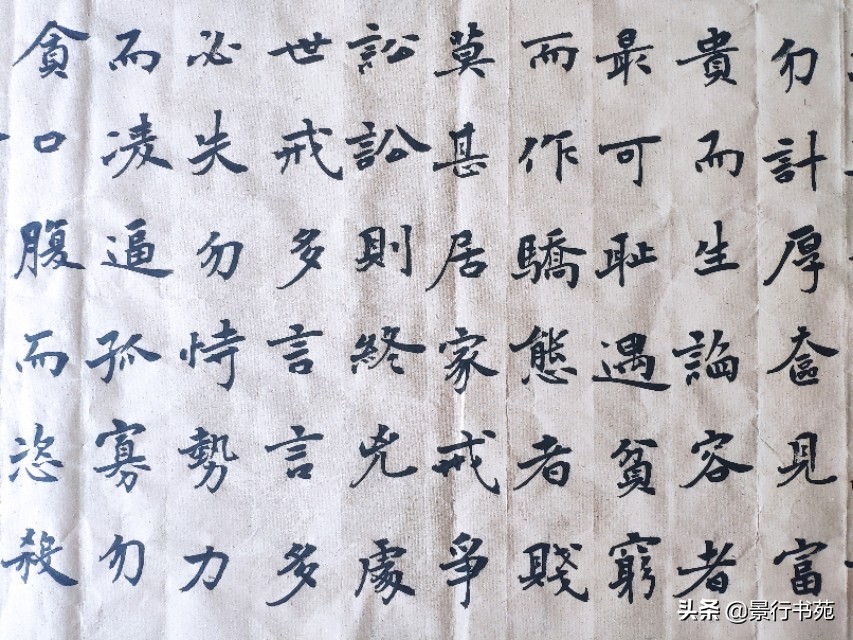 勿計厚奩見富
貴而生諂容者
最可恥遇貧窮
而作驕態者賤
莫甚居家戒爭
訟訟則終凶處
世戒多言言多
必失勿恃勢力
而凌逼孤寡勿
貪口腹而恣殺
头条 @景行书苑